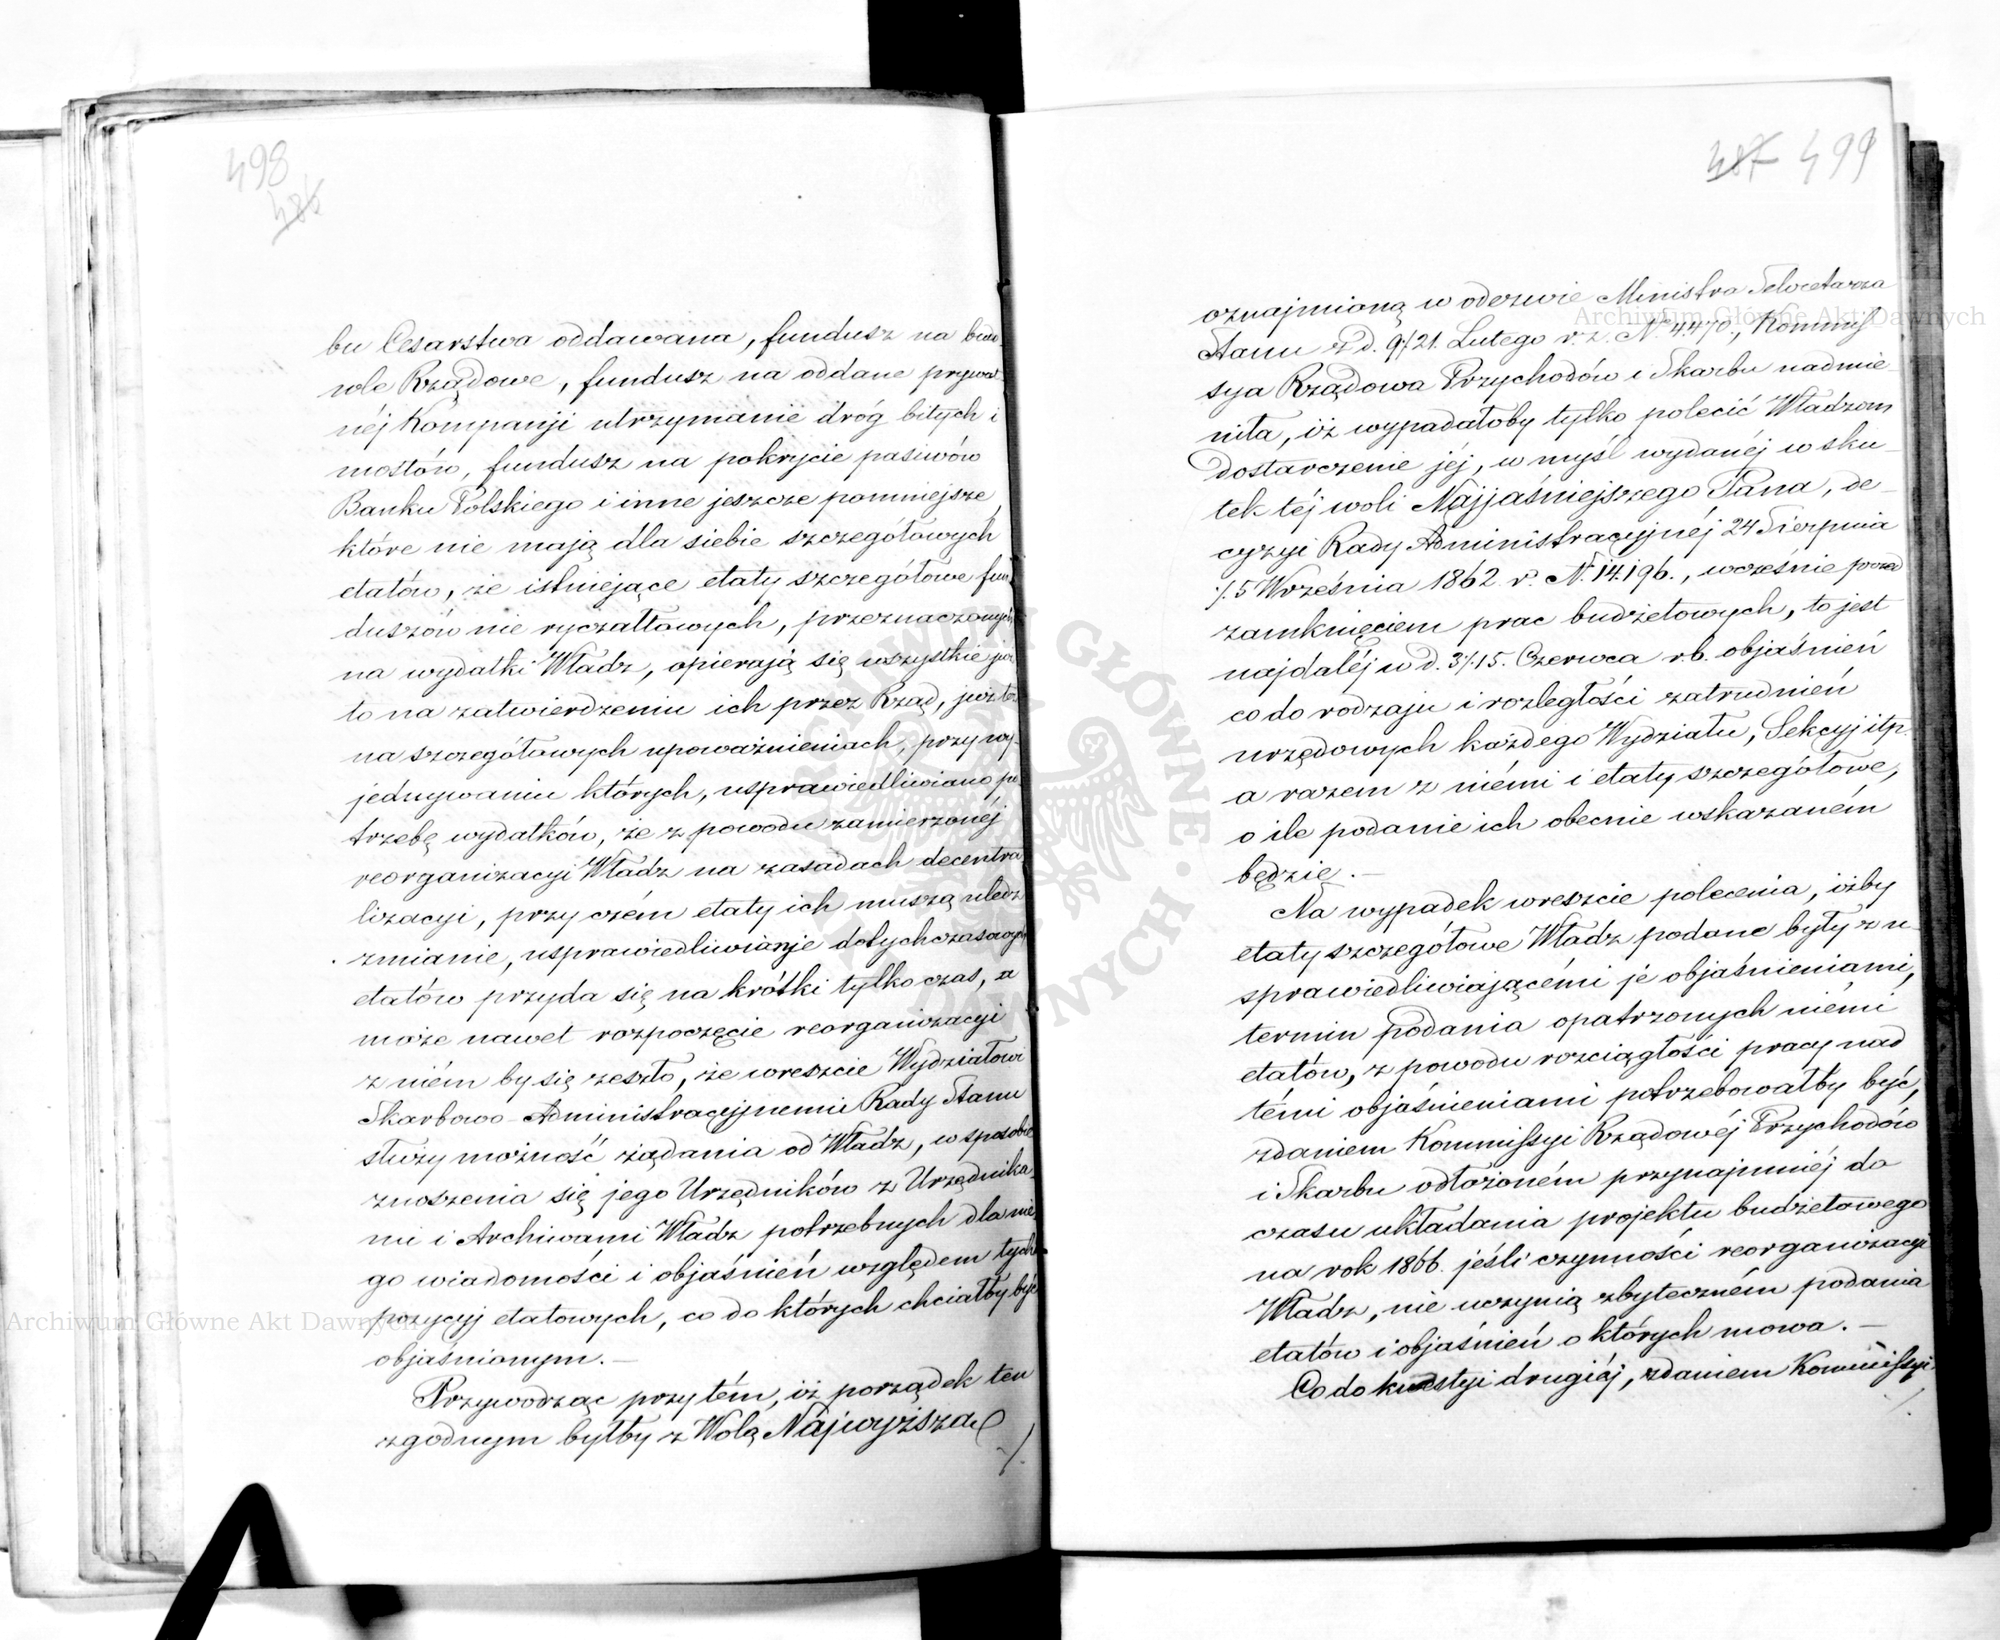 498
486
bu Cesarstwa oddawana, fundusz na budo-
wle Rządowe, fundusz na oddane prywat-
néj Kompanji utrzymanie dróg bitych i
mostów, fundusz na pokrycie pasiwów
Banku Polskiego i inne jeszcze pomniejsze,
które nie mają dla siebie szczegółowych
etatów, że istniejące etaty szczegółowe fun-
duszów nie ryczałtowych, przeznaczonych
na wydatki Władz, opierają się wszystkie już
to na zatwierdzeniu ich przez Rząd, już to
na szczegółowych upoważnieniach, przy wy-
jednywaniu których, usprawiedliwiano po-
trzebę wydatków, że z powodu zamierzonéj
reorganizacyi Władz na zasadach decentra-
lizacyi, przy czém etaty ich muszą uledz
zmianie, usprawiedliwianie dotychczasowych
etatów przyda się na krótki tylko czas, a
może nawet rozpoczęcie reorganizacyi
z niém by się zeszło, że wreszcie Wydziałowi
Skarbowo-Administracyjnemu Rady Stanu
służy możność żądania od Władz, w sposobie
znoszenia się jego Urzędników z Urzędnika-
mi i Archiwami Władz potrzebnych dla nie-
go wiadomości i objaśnień względem tych
pozycyj etatowych, co do których chciałby być
objaśnionym.—
Przywodząc przytém, iż porządek ten
zgodnym byłby z Wolą Najwyższą
487 499
oznajmioną w odezwie Ministra Sekretarza
Stanu z d. 9/21. Lutego r. z. Nº 4470., Kommis-
sya Rządowa Przychodów i Skarbu nadmie-
niła, iż wypadałoby tylko polecić Władzom
dostarczenie jéj, w myśl wydanéj w sku-
tek téj woli Najjaśniejszego Pana, de-
cyzyi Rady Administracyjnéj 24 Sierpnia
/5 Września 1862 r. N. 14.196., wcześnie przed
zamknięciem prac budżetowych, to jest
najdaléj w d. 3/15. Czerwca r.b. objaśnień
co do rodzaju i rozległości zatrudnień
urzędowych każdego Wydziału, Sekcyj itp.
a razem z niémi i etaty szczegółowe,
o ile podanie ich obecnie wskazaném
będzie.—
Na wypadek wreszcie polecenia, iżby
etaty szczegółowe Władz podane były z u-
sprawiedliwiającémi je objaśnieniami,
termin podania opatrzonych niémi
etatów, z powodu rozciągłości pracy nad
témi objaśnieniami potrzebowałby być,
zdaniem Kommissyi Rządowéj Przychodów
i Skarbu odłożoném przynajmniéj do
czasu układania projektu budżetowego
na rok 1866. jeśli czynności reorganizacyi
Władz, nie uczynią zbyteczném podania
etatów i objaśnień o których mowa.—
Co do kwestyi drugiéj, zdaniem Kommissyi
Archiwum Główne Akt Dawnych
Archiwum Główne Akt Dawnych
ARCHIWUM GŁÓWNE AKT DAWNYCH